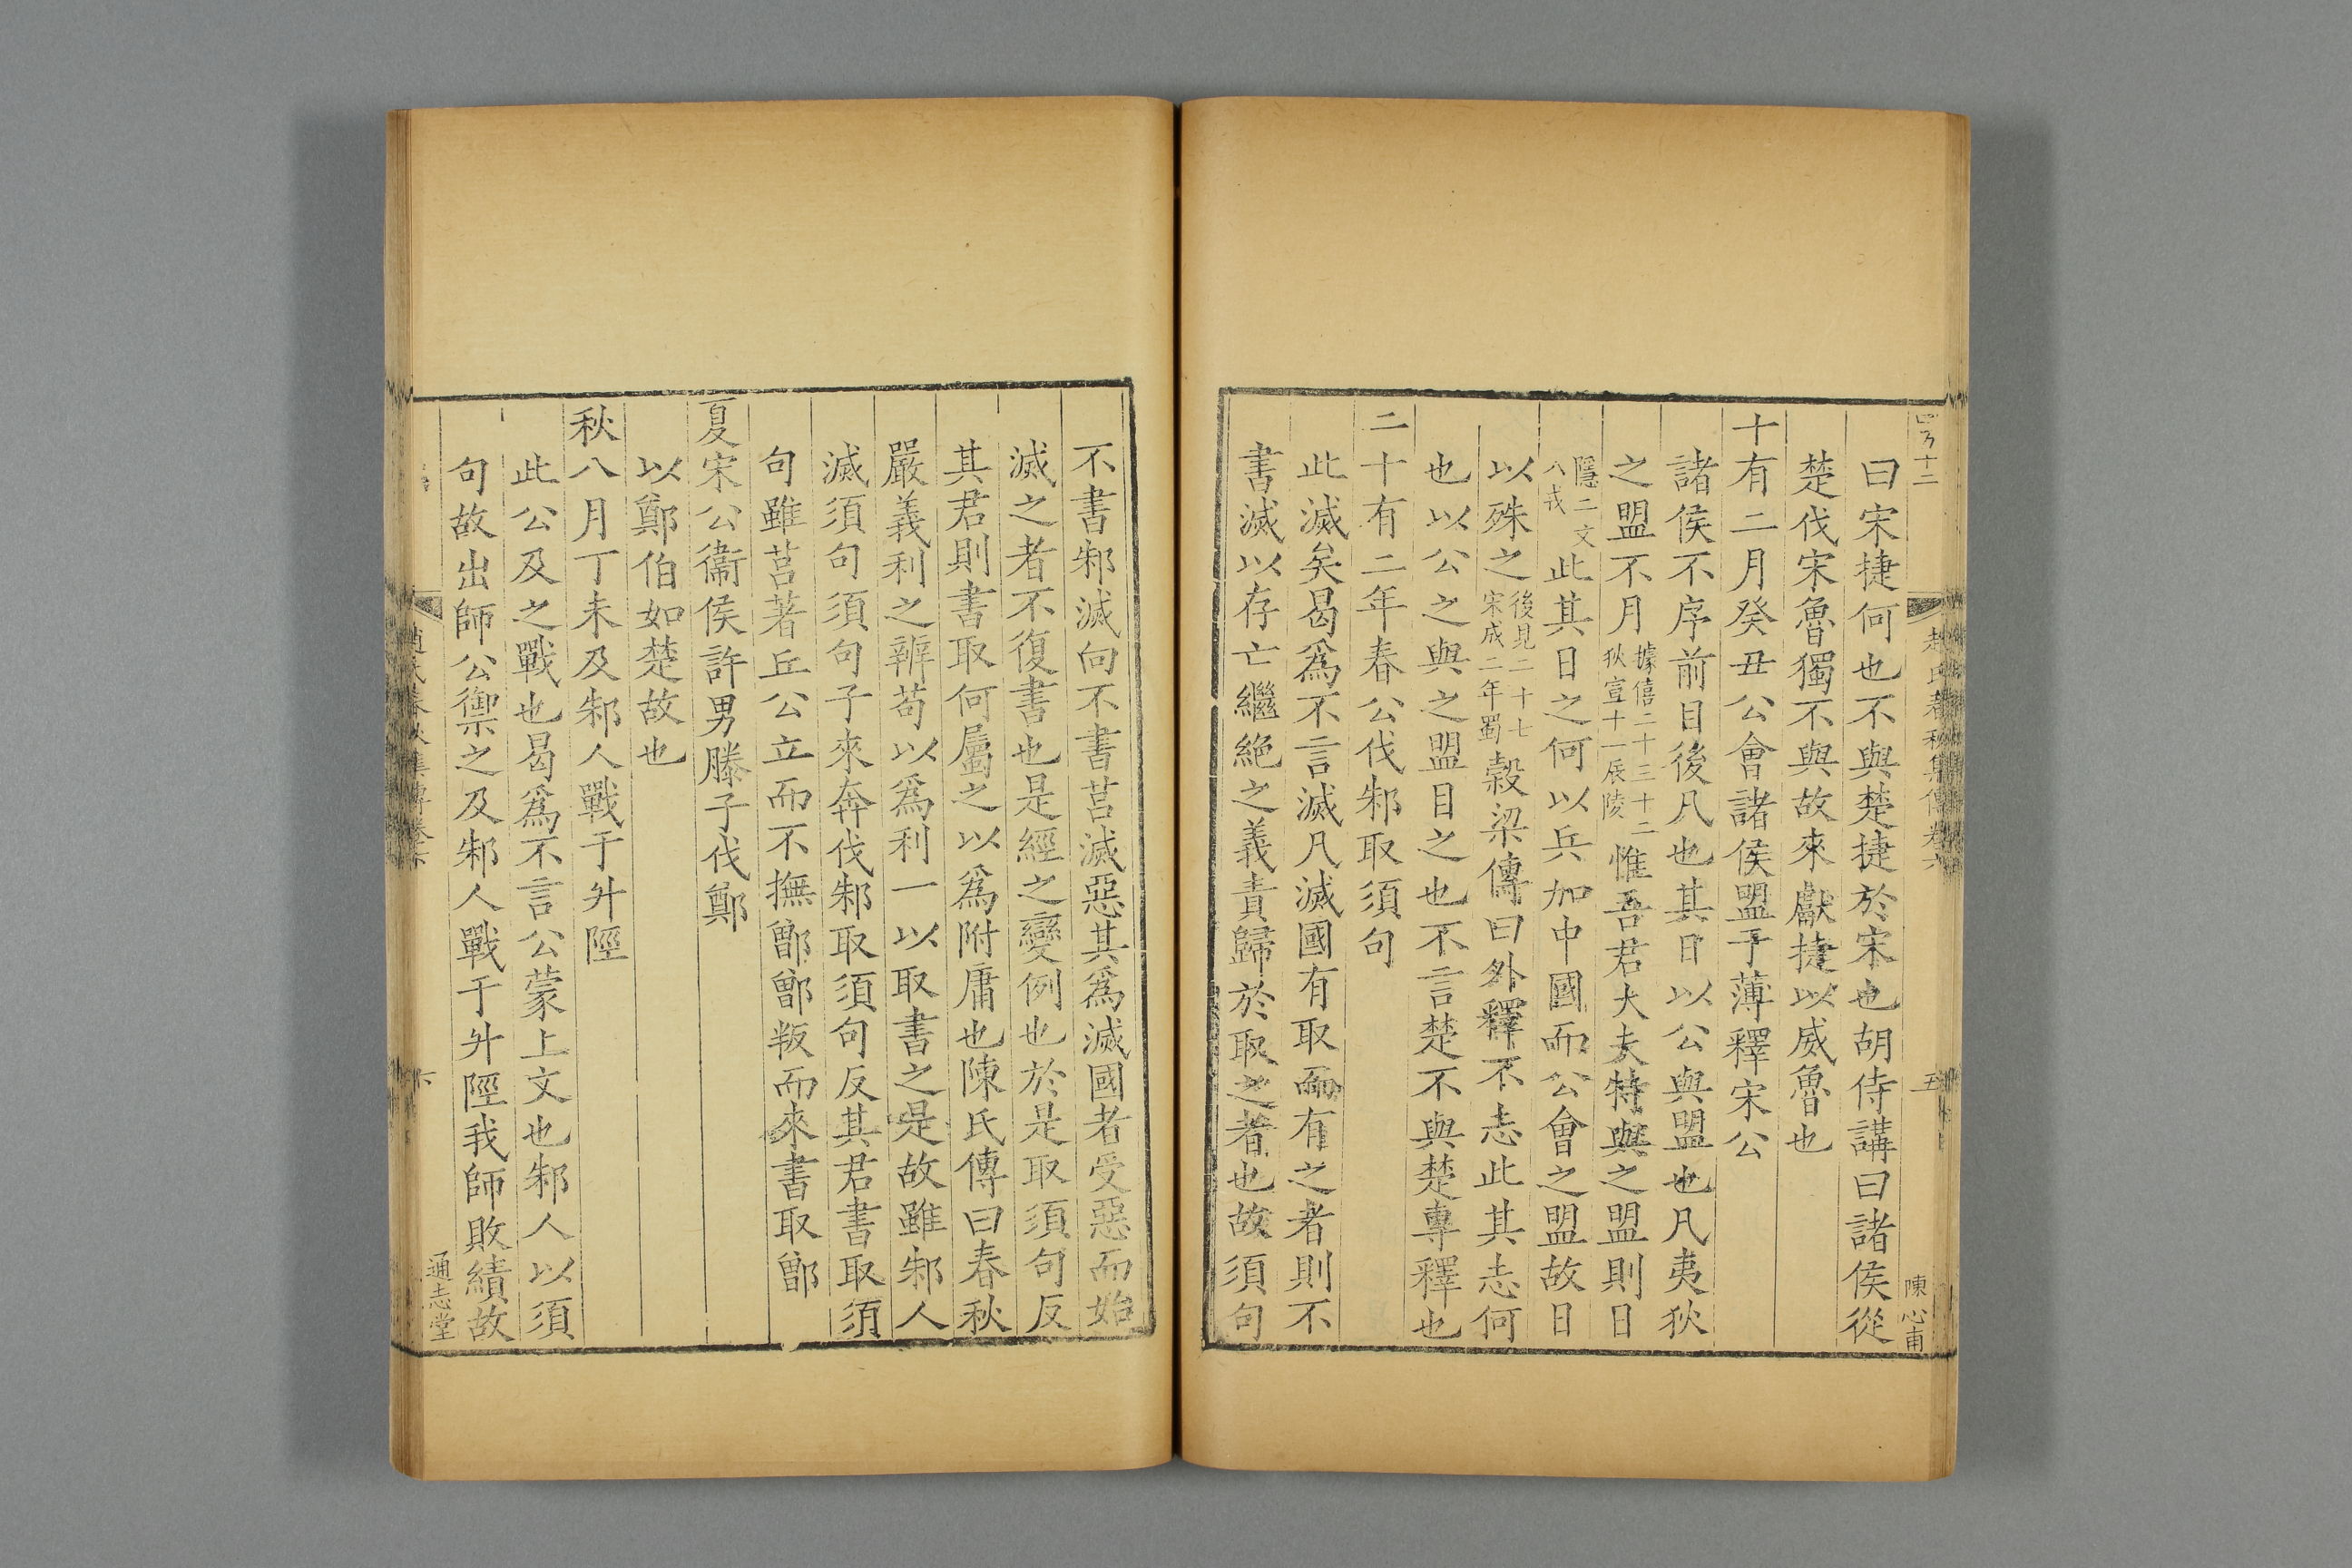 曰宋捷何也不與楚捷於宋也胡侍講曰諸侯從
楚伐宋魯獨不與故來獻捷以威魯也
十有二月癸丑公會諸侯盟于薄釋宋公
諸侯不序前目後凡也其日以公與盟也凡夷狄
之盟不月據僖二十三十二狄宣十一辰陵惟吾君大夫特與之盟則日
隱二文八戎此其日之何以兵加中國而公會之盟故日
以殊之後見二十七宋成二年蜀榖梁傳曰外釋不志此其志何
也以公之與之盟目之也不言楚不與楚專釋也
二十有二年春公伐邾取須句
此滅矣曷爲不言滅凡滅國有取而有之者則不
書滅以存亡繼絶之義責歸於取之者也故須句
不書邾滅向不書莒滅惡其爲滅國者受惡而始
滅之者不復書也是經之變例也於是取須句反
其君則書取何屬之以爲附庸也陳氏傳曰春秋
嚴義利之辨苟以爲利一以取書之是故雖邾人
滅須句須句子來奔伐邾取須句反其君書取須
句雖莒著丘公立而不撫鄫鄫叛而來書取鄫
夏宋公衞侯許男滕子伐鄭
以鄭伯如楚故也
秋八月丁未及邾人戰于升陘
此公及之戰也曷爲不言公蒙上文也邾人以須
句故出師公禦之及邾人戰于升陘我師敗績故
趙氏春秋集傳卷六
五
陳心甫
通志堂